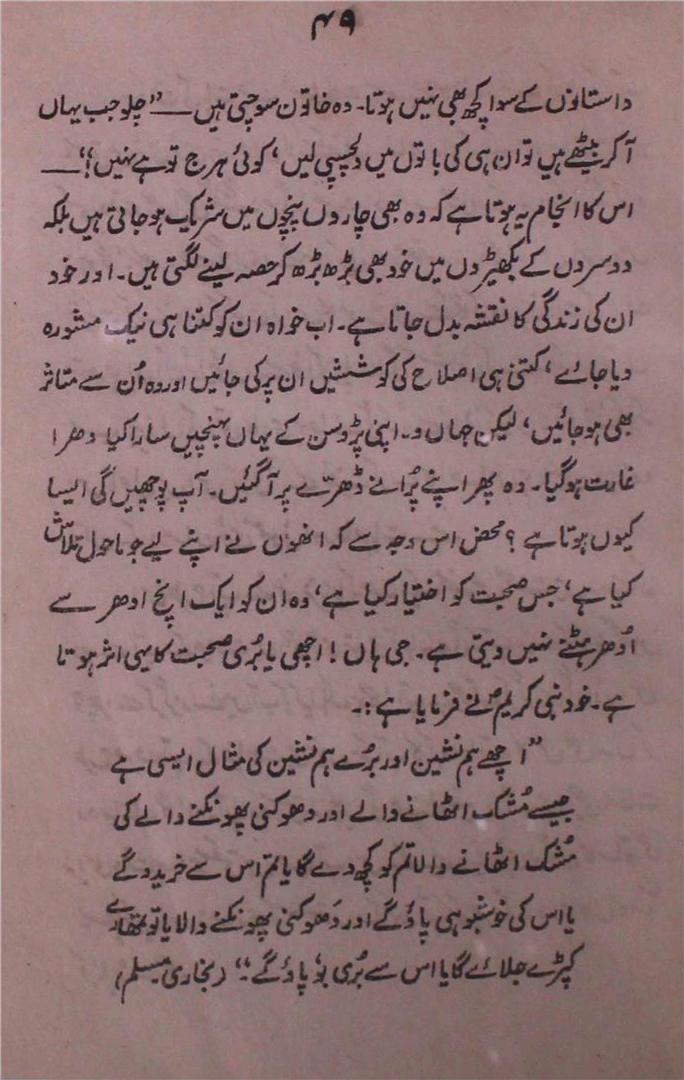 ۴۹
داستانوں کے سوا کچھ بھی نہیں ہوتا۔ وہ خاتون سوچتی ہیں — ”چلو جب یہاں
آکر بیٹھے ہیں تو ان ہی کی باتوں میں دلچسپی لیں، کوئی ہرج تو ہے نہیں؟“ —
اس کا انجام یہ ہوتا ہے کہ وہ بھی چاروں پنچوں میں شریک ہو جاتی ہیں بلکہ
دوسروں کے بکھیڑوں میں خود بھی بڑھ بڑھ کر حصہ لینے لگتی ہیں۔ اور خود
ان کی زندگی کا نقشہ بدل جاتا ہے۔ اب خواہ ان کو کتنا ہی نیک مشورہ
دیا جائے، کتنی ہی اصلاح کی کوششیں ان پر کی جائیں اور وہ اُن سے متاثر
بھی ہو جائیں، لیکن جہاں وہ اپنی پڑوسن کے یہاں پہنچیں سارا کیا دھرا
غارت ہو گیا۔ وہ پھر اپنے پُرانے ڈھرے پر آگئیں۔ آپ پوچھیں گی ایسا
کیوں ہوتا ہے؟ محض اس وجہ سے کہ انھوں نے اپنے لیے جو ماحول تلاش
کیا ہے، جس صحبت کو اختیار کیا ہے، وہ ان کو ایک انچ ادھر سے
اُدھر ہٹنے نہیں دیتی ہے۔ جی ہاں! اچھی یا بُری صحبت کا یہی اثر ہوتا
ہے۔ خود نبی کریمؐ نے فرمایا ہے:۔
”اچھے ہم نشین اور بُرے ہم نشین کی مثال ایسی ہے
جیسے مُشک اٹھانے والے اور دھوکنی پھونکنے والے کی
مُشک اٹھانے والا تم کو کچھ دے گا یا تم اس سے خریدو گے
یا اس کی خوشبو ہی پاؤ گے اور دَھوکنی پھونکنے والا یا تو تمھارے
کپڑے جلائے گا یا اس سے بُری بوُ پاؤ گے۔“ (بخاری مسلم)